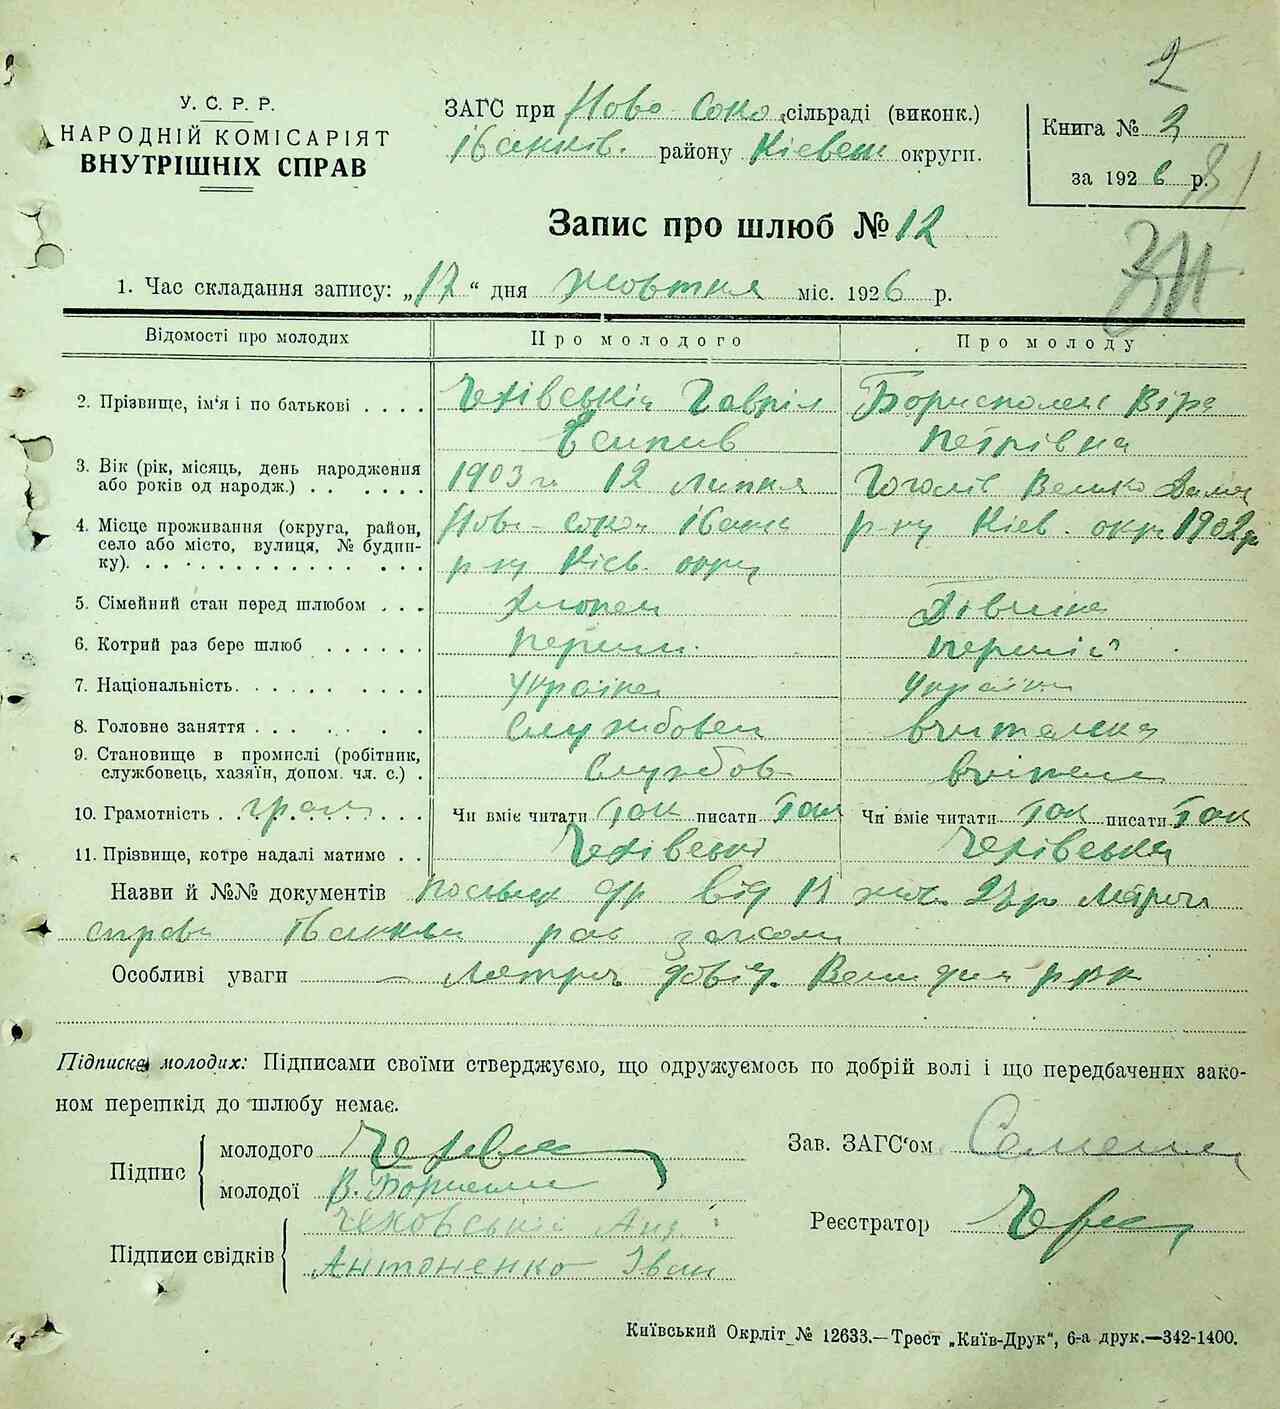 2
У. С. Р. Р.
НАРОДНІЙ КОМІСАРІЯТ
ВНУТРІШНІХ СПРАВ
ЗАГС при Ново Соко сільраді (виконк.)
Іванків. району Київськ округи.
Книга № 2
за 1926 р.
Запис про шлюб № 12
1. Час складання запису: „17“ дня жовтня міс. 1926 р.
Відомості про молодих Про молодого Про молоду
2. Прізвище, ім‘я і по батькові . . . . Чехівській Гавріл Борисполец Віра
Петрівна
3. Вік (рік, місяць, день народження
або років од народж.) . . . . . . 1903 г 12 липня Гоголів Велико Дим
4. Місце проживання (округа, район,
село або місто, вулиця, № будин-
ку). Ново-Соко Іванк р-ну Київ. окр 1902 р
р-ну Київ. окру
5. Сімейний стан перед шлюбом . . . Хлопец Дівчина
6. Котрий раз бере шлюб . . . . . . перший перший
7. Національність. . . . . . . . . . Україне Україн
8. Головне заняття . . . . . . . Службовец вчителька
9. Становище в промислі (робітник,
службовець, хазяїн, допом. чл. с.) . Службов вчител
10. Грамотність грам Чи вміє читати так писати так Чи вміє читати так писати так
11. Прізвище, котре надалі матиме . . Чехівські Чехівська
Назви й №№ документів від
справ Іванков рай загсом
Особливі уваги — Метрич довід.
Підписка молодих: Підписами своїми стверджуємо, що одружуємось по добрій волі і що передбачених зако-
ном перешкід до шлюбу немає.
Підпис молодого
молодої В. Борисполец
Зав. ЗАГС‘ом
Реєстратор
Підписи свідків Чеховській Анд
Антоненко Іван
Київський Окрліт № 12633.—Трест „Київ-Друк“, 6-а друк.—342-1400.